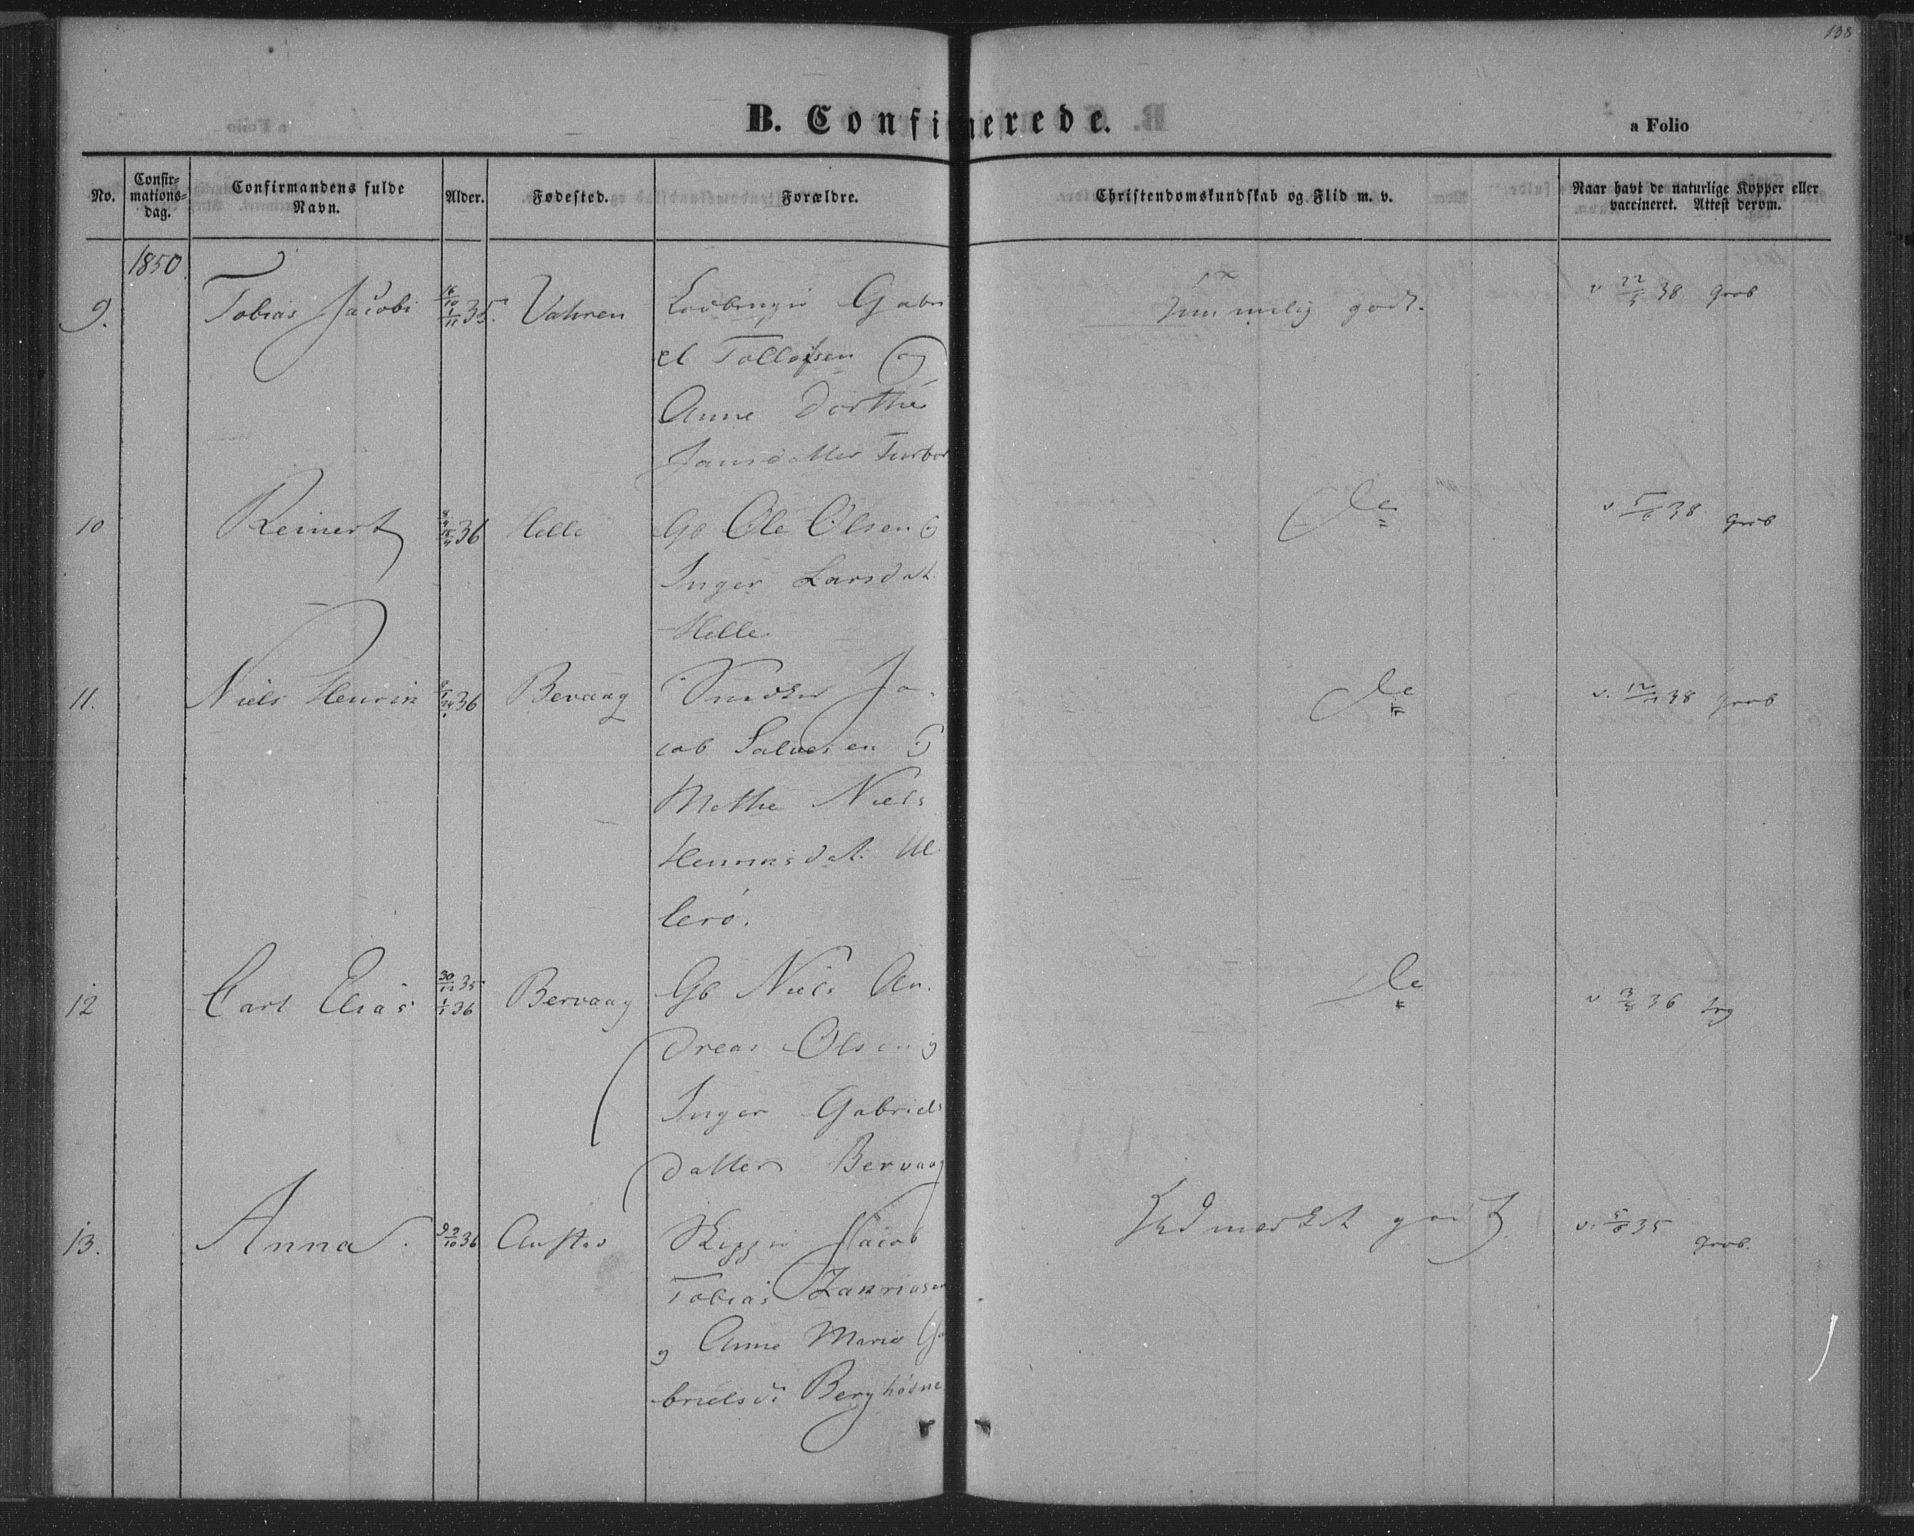 138
B. Confirmerede.
a Folio
No.
Confir-
mations-
dag.
Confirmandens fulde
Navn.
Alder.
Fødested.
Forældre.
Christendomskundskab og Flid m. v.
Naar havt de naturlige Kopper eller
vaccineret. Attest derom.
1850
9. Tobias Jacobi 16/10 1/11 35. Vahren Gabri
el Tollofsen og
Anne Dorthe
Jansdatter
temmelig godt.
v 22/5 38 Grob
10 Reinert 36 Helle Gb Ole Olsen og
Inger Larsdat.
Helle
do
v 5/6 38 Grob
11. Niels Henrik 36 Bevaag Ja-
cob Salvesen og
Methe Niels
Henriksdat. Ul
lerø.
do
v. 12/ 38 Grob
12 Carl Elias 30/12 35 1/1 36 Bervaag Gb Niels An-
dreas Olsen og
Inger Gabriels
datter Bervaag
do
v 13/8 36
13. Anna. 36 Skipper Jacob
Tobias Zakriasen
og Anne Marie Ga
brielsd. Berghøvne
Udmærket godt
v. 5/8 35 Grob.